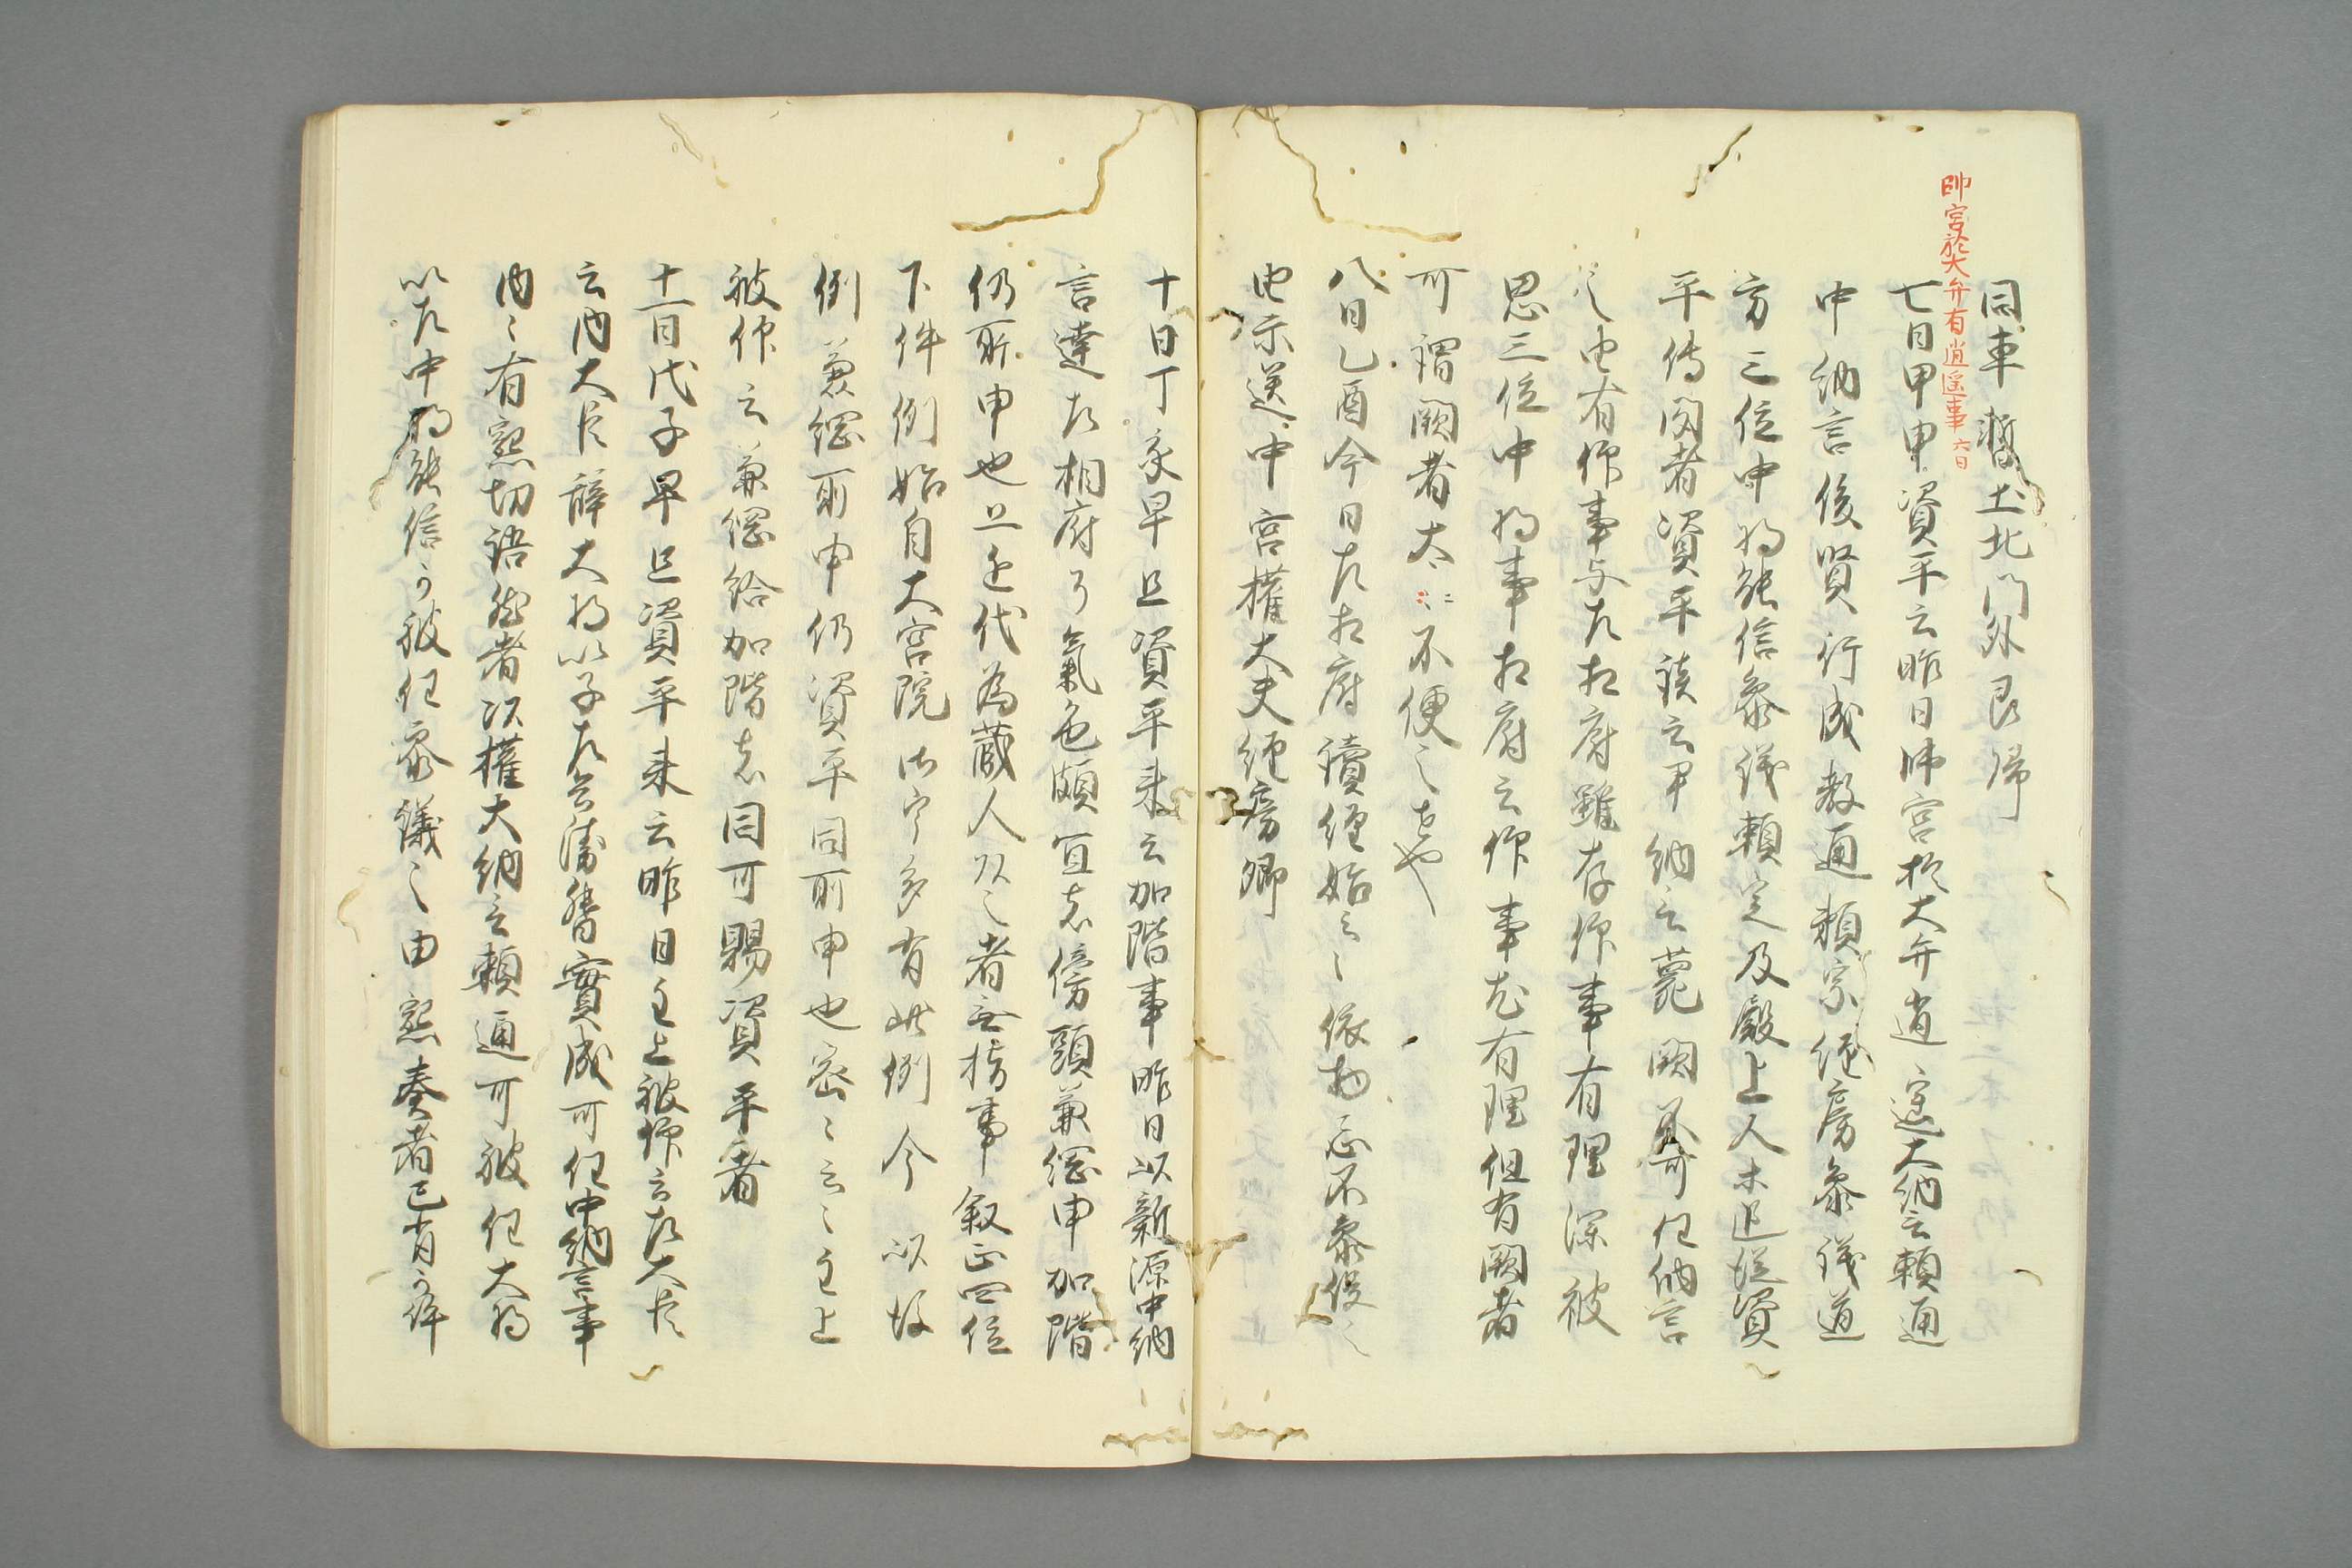 帥宮於大弁有逍遥事 六日
同車暫立北門外即帰
七日甲申資平云昨日帥宮於大弁逍遥大納言頼通
中納言俊賢行成教通頼宗経房参議道
方三位中将能信参議頼定及殿上人未追従資
平伝聞者資平談云中納言薨闕可任納言
之由有仰事与左相府雖存仰事有理深被
思三位中将事相府云仰事尤有理但有闕者
可謂闕者太々不便之
八日乙酉今日左相府読経始云々依物忌不参役之
由示送中宮権大夫経房卿
十日丁亥早旦資平来云加階事昨日以新源中納
言達左相府了気色頗宜者傍頭兼綱申加階
仍所申也上近代為蔵人頭之者無指事叙正四位
下件例始自大宮院御宇多有此例今以故
例兼綱所申仍資平同所申也密々云々主上
被仰云兼綱給加階者同可賜資平者
十一日戊子早旦資平来云昨日主上被仰云左大臣
云内大臣辞大将以子左兵衛督実成可任中納言事
内々有懇切語然者以権大納言頼通可被任大将
以左中将能信可被任参議之由懇奏者已有可許